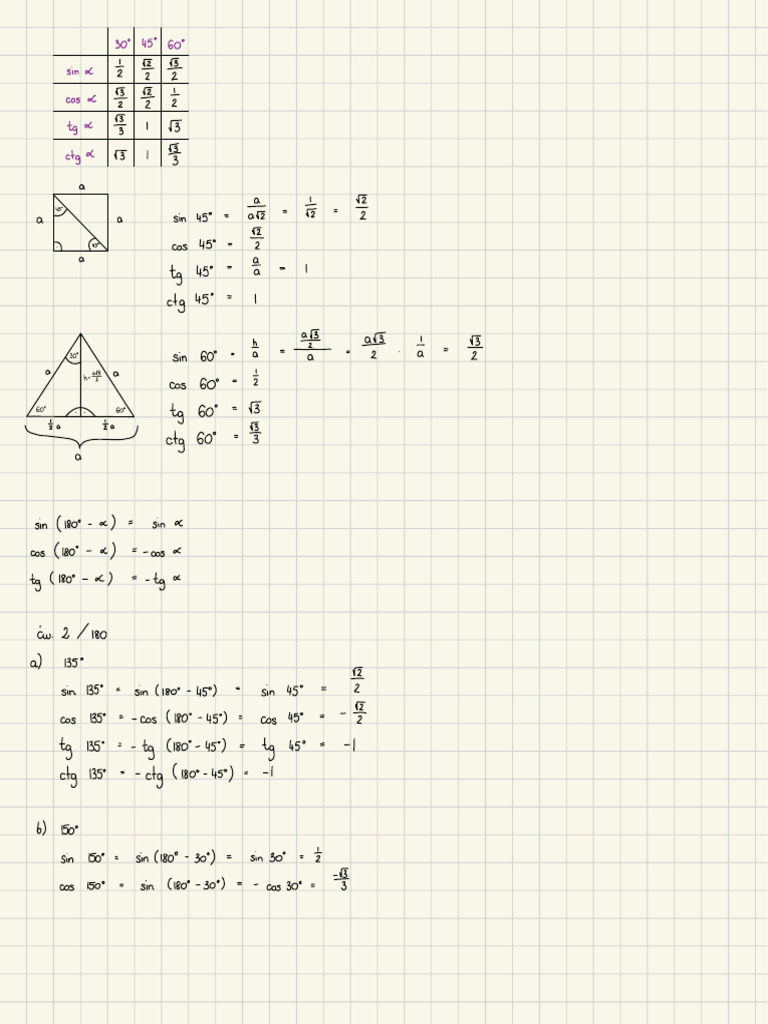 30° 45° 60°
sin α 1/2 √2/2 √3/2
cos α √3/2 √2/2 1/2
tg α √3/3 1 √3
ctg α √3 1 √3/3
a
a 45° a
45°
a
sin 45° = a/a√2 = 1/√2 = √2/2
cos 45° = √2/2
tg 45° = a/a = 1
ctg 45° = 1
30°
a h = a√3/2 a
60° 60°
1/2 a 1/2 a
a
sin 60° = h/a = (a√3/2)/a = a√3/2 · 1/a = √3/2
cos 60° = 1/2
tg 60° = √3
ctg 60° = √3/3
sin (180° - α) = sin α
cos (180° - α) = -cos α
tg (180° - α) = -tg α
ćw. 2 / 180
a) 135°
sin 135° = sin (180° - 45°) = sin 45° = √2/2
cos 135° = -cos (180° - 45°) = cos 45° = -√2/2
tg 135° = - tg (180° - 45°) = tg 45° = -1
ctg 135° = - ctg (180° - 45°) = -1
b) 150°
sin 150° = sin (180° - 30°) = sin 30° = 1/2
cos 150° = sin (180° - 30°) = - cos 30° = -√3/3